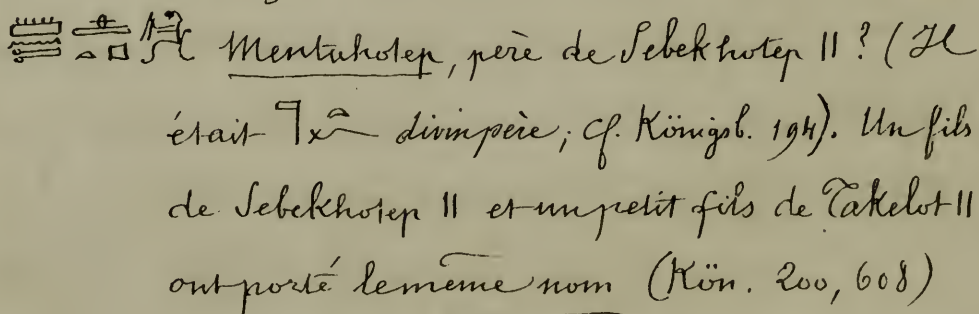 Mentuhotep, père de Sebekhotep II? (Il
était divin père; cf. Königsb. 194). Un fils
de Sebekhotep II et un petit fils de Takelot II
ont porté le même nom (Kön. 200, 608)